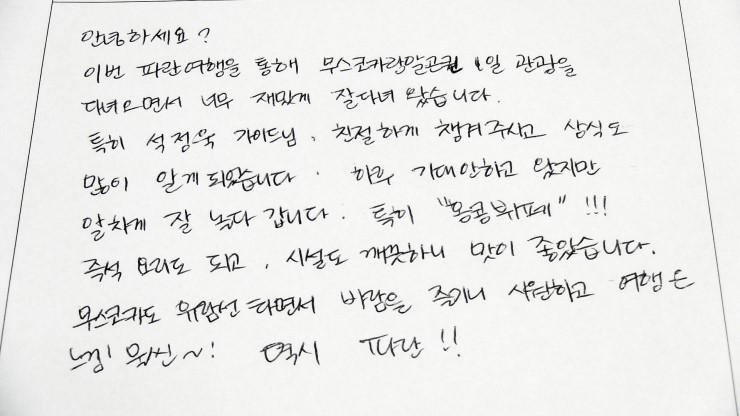 안녕하세요?
이번 파란여행을 통해 무스코카랑알곤퀸 1일 관광을
다녀오면서 너무 재밌게 잘다녀 왔습니다.
특히 석정욱 가이드님. 친절하게 챙겨주시고 상식도
많이 알게 되었습니다. 하루 기대안하고 왔지만
알차게 잘 놀다 갑니다. 특히 "몽콩뷔페" !!!
즉석 요리도 되고, 시설도 깨끗하니 맛이 좋았습니다.
무스코카도 유람선 타면서 바람을 즐기니 시원하고 여행온
느낌! 물씬~! 역시 파란!!